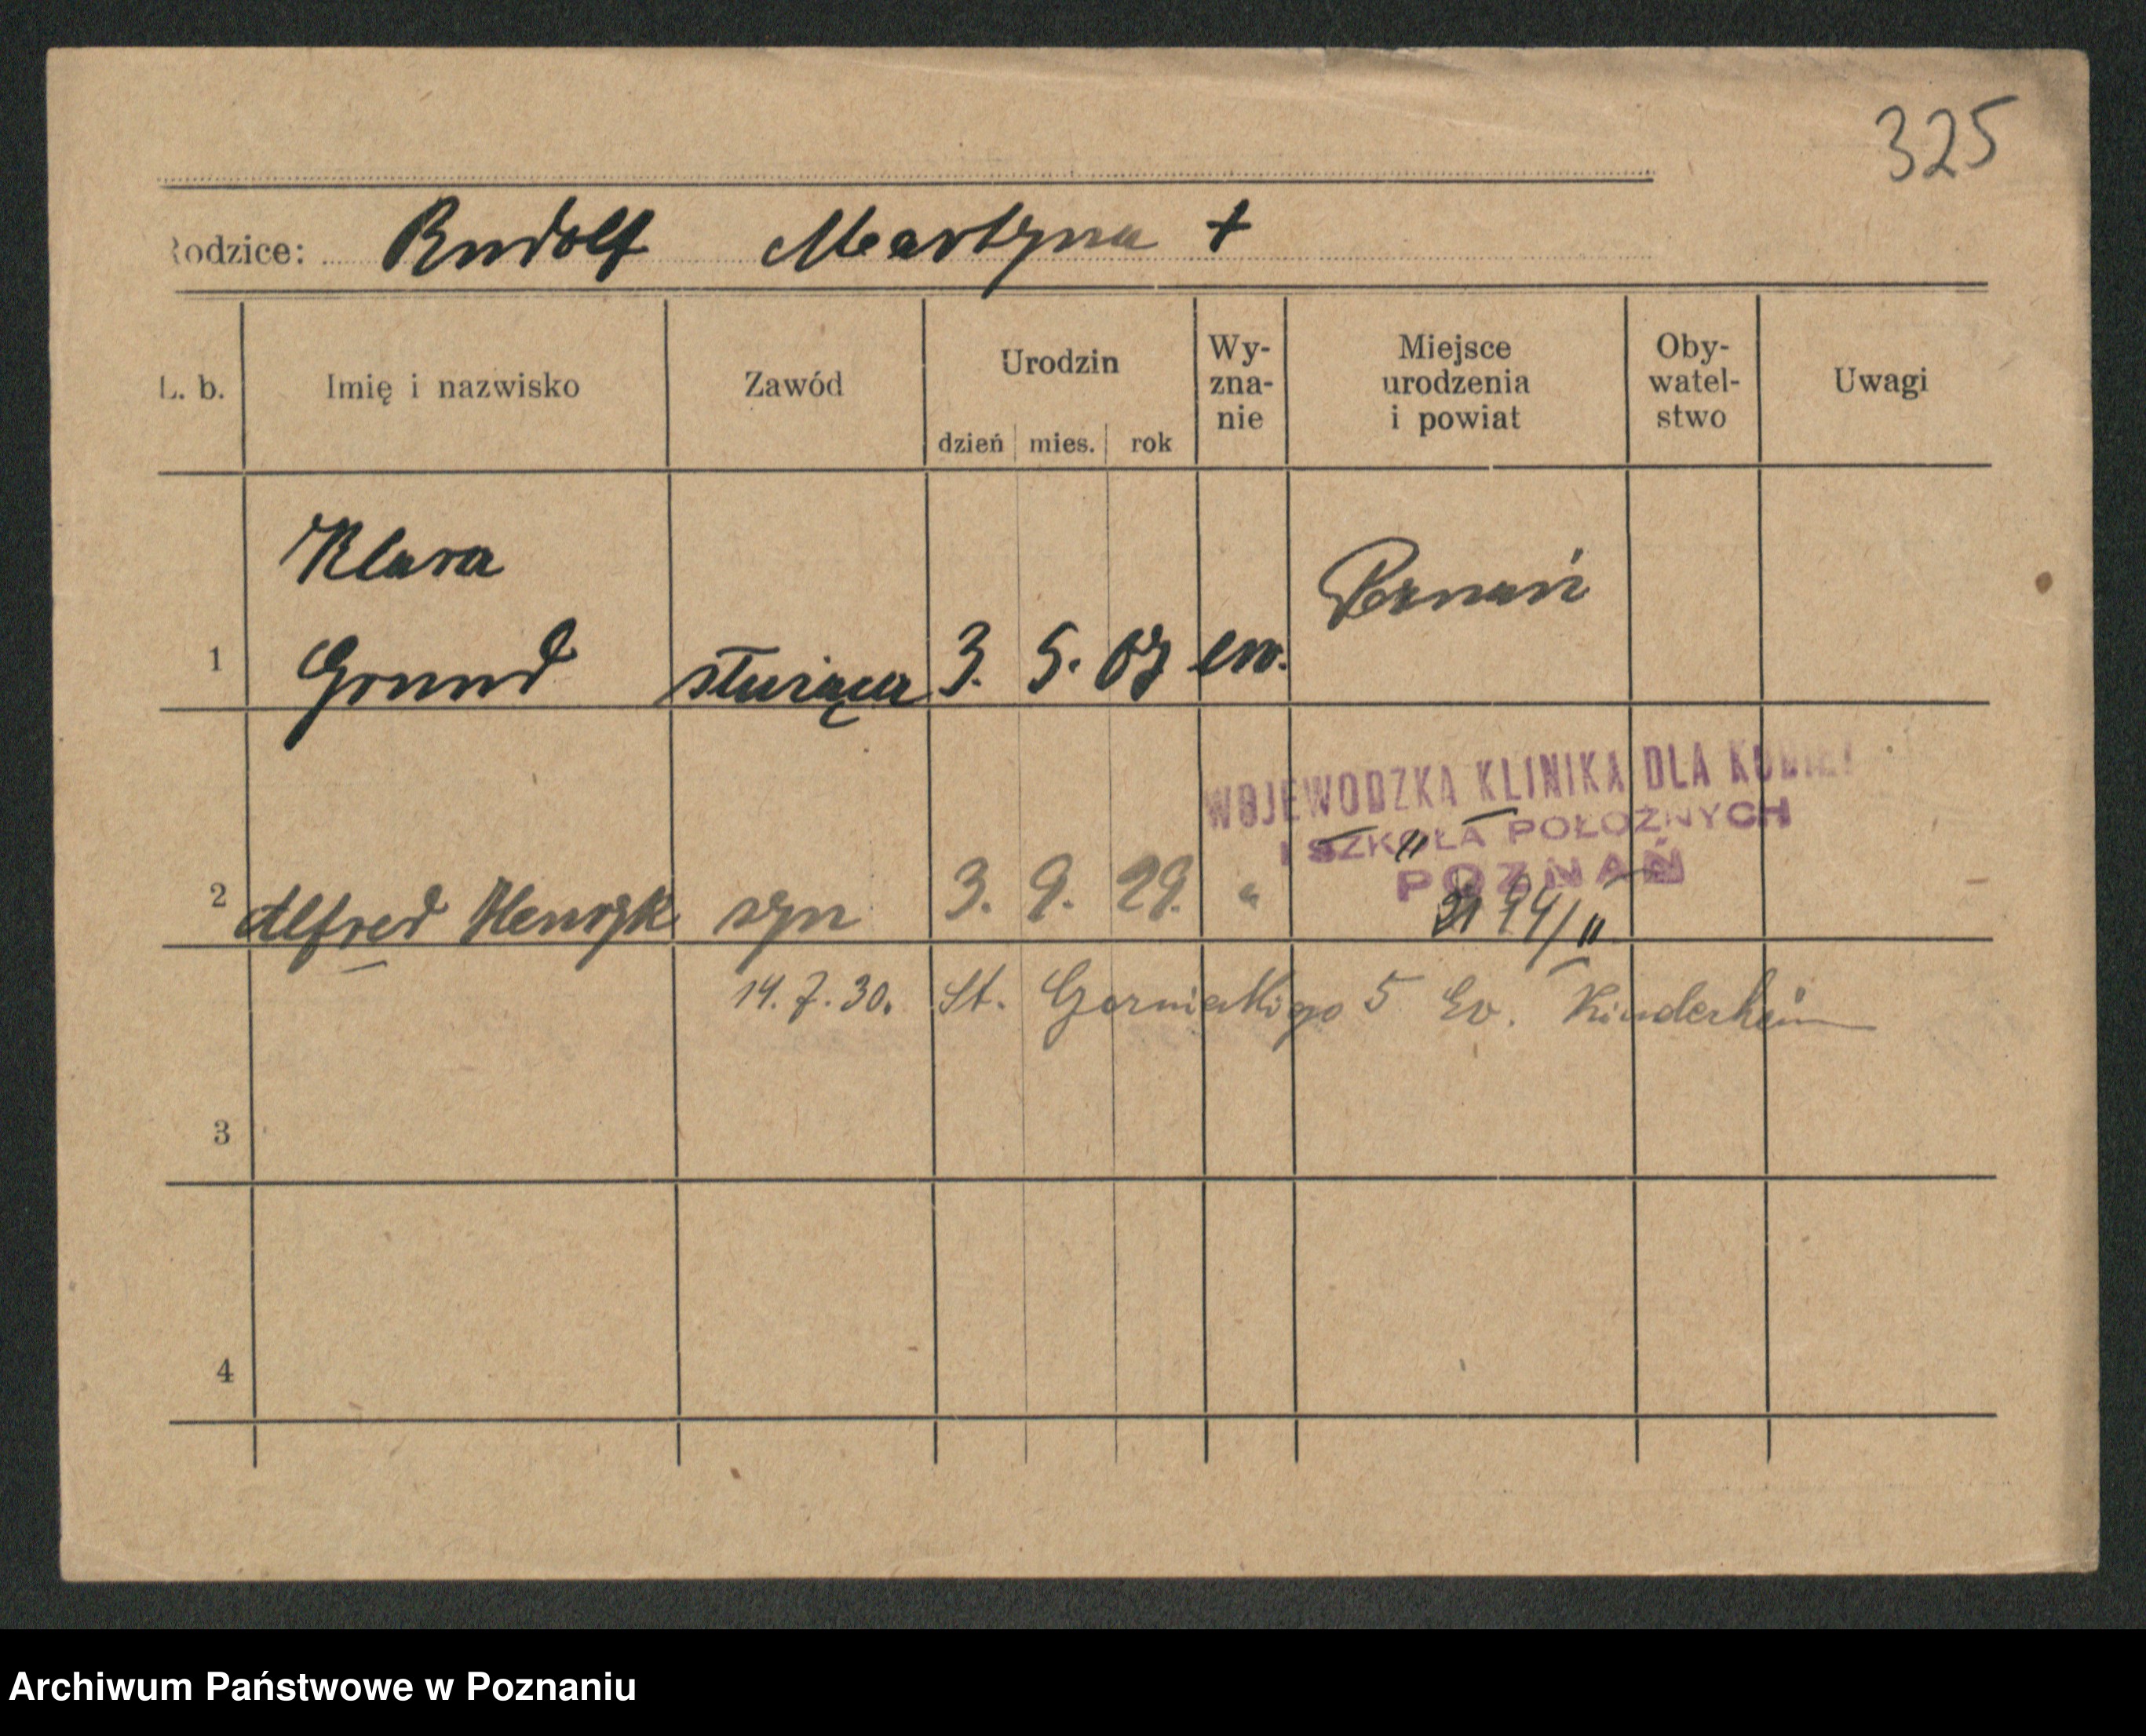 325
Rodzice: Rudolf Martyna +
L. b. Imię i nazwisko Zawód Urodzin dzień mies. rok Wy-zna-nie Miejsce urodzenia i powiat Oby-watel-stwo Uwagi
Klara
1 Grund służąca 3. 5. 07 ew. Poznań
WOJEWODZKA KLINIKA DLA KOBIET
I SZKOŁA POŁOŻNYCH
POZNAŃ
2 Alfred Henryk syn 3. 9. 29. " "
94/II
14. 7. 30. St. 5 Ev. Kinderheim
3
4
Archiwum Państwowe w Poznaniu